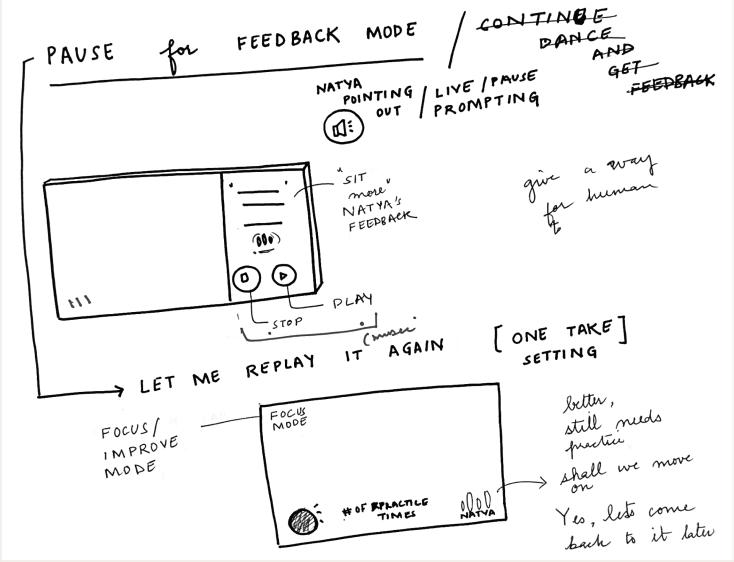 PAUSE for FEEDBACK MODE /
CONTINUE
DANCE
AND
GET
FEEDBACK
NATYA
POINTING
OUT / LIVE / PAUSE
PROMPTING
"SIT
more"
NATYA'S
FEEDBACK
give a way
for human
STOP
PLAY
LET ME REPLAY IT AGAIN
[ONE TAKE]
SETTING
FOCUS/
IMPROVE
MODE
FOCUS
MODE
# OF PRACTICE
TIMES
NATYA
better,
still needs
practice
shall we move
on
Yes, lets come
back to it later